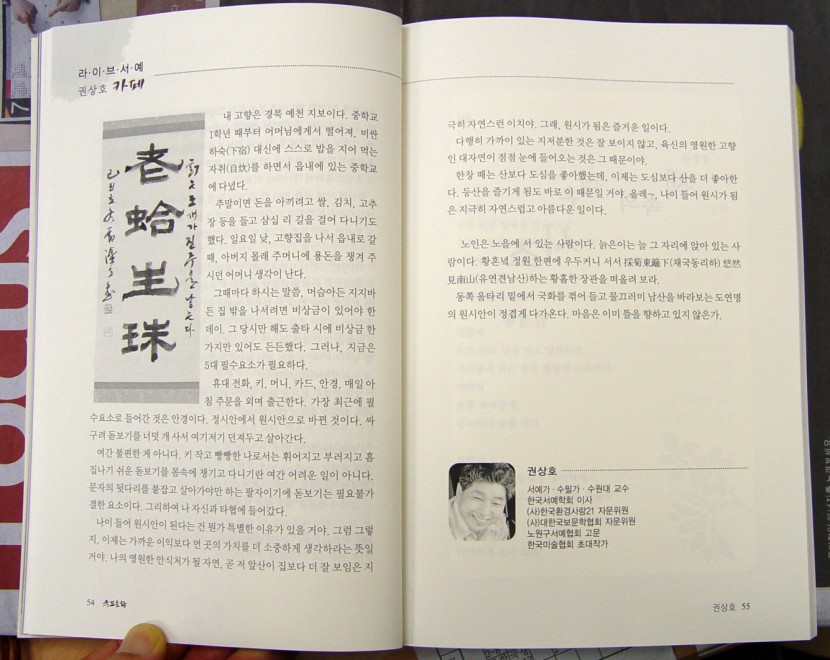 라·이·브·서·예
권상호 카페
老蛤生珠
내 고향은 경북 예천 지보이다. 중학교
1학년 때부터 어머님에게서 떨어져, 비싼
하숙(下宿) 대신에 스스로 밥을 지어 먹는
자취(自炊)를 하면서 읍내에 있는 중학교
에 다녔다.
주말이면 돈을 아끼려고 쌀, 김치, 고추
장 등을 들고 삼십 리 길을 걸어 다니기도
했다. 일요일 낮, 고향집을 나서 읍내로 갈
때, 아버지 몰래 주머니에 용돈을 챙겨 주
시던 어머니 생각이 난다.
그때마다 하시는 말씀, 머슴아든 지지바
든 집 밖을 나서려면 비상금이 있어야 한
데이. 그 당시만 해도 출타 시에 비상금 한
가지만 있어도 든든했다. 그러나, 지금은
5대 필수요소가 필요하다.
휴대 전화, 키, 머니, 카드, 안경. 매일 아
침 주문을 외며 출근한다. 가장 최근에 필
수요소로 들어간 것은 안경이다. 정시안에서 원시안으로 바뀐 것이다. 싸
구려 돋보기를 너덧 개 사서 여기저기 던져두고 살아간다.
여간 불편한 게 아니다. 키 작고 빵빵한 나로서는 휘어지고 부러지고 흠
집나기 쉬운 돋보기를 몸속에 챙기고 다니기란 여간 어려운 일이 아니다.
문자의 뒷다리를 붙잡고 살아가야만 하는 팔자이기에 돋보기는 필요불가
결한 요소이다. 그리하여 나 자신과 타협에 들어갔다.
나이 들어 원시안이 된다는 건 뭔가 특별한 이유가 있을 거야. 그럼 그렇
지, 이제는 가까운 이익보다 먼 곳의 가치를 더 소중하게 생각하라는 뜻일
거야. 나의 영원한 안식처가 될 자연, 곧 저 앞산이 집보다 더 잘 보임은 지
54
극히 자연스런 이치야. 그래, 원시가 됨은 즐거운 일이다.
다행히 가까이 있는 지저분한 것은 잘 보이지 않고, 육신의 영원한 고향
인 대자연이 점점 눈에 들어오는 것은 그 때문이야.
한창 때는 산보다 도심을 좋아했는데, 이제는 도심보다 산을 더 좋아한
다. 등산을 즐기게 됨도 바로 이 때문일 거야. 올레~, 나이 들어 원시가 됨
은 지극히 자연스럽고 아름다운 일이다.
노인은 노을에 서 있는 사람이다. 늙은이는 늘 그 자리에 앉아 있는 사
람이다. 황혼녘 정원 한편에 우두커니 서서 採菊東籬下(채국동리하) 悠然
見南山(유연견남산)하는 황홀한 장관을 떠올려 보라.
동쪽 울타리 밑에서 국화를 꺾어 들고 물끄러미 남산을 바라보는 도연명
의 원시안이 정겹게 다가온다. 마음은 이미 뜰을 향하고 있지 않은가.
권상호
서예가·수필가·수원대 교수
한국서예학회 이사
(사)한국환경사랑21 자문위원
(사)대한국보문학협회 자문위원
노원구서예협회 고문
한국미술협회 초대작가
권상호 55